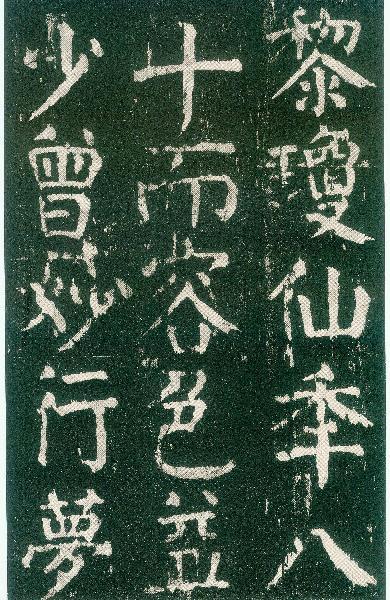 黎瓊仙年八
十而容色益
少曾妙行夢